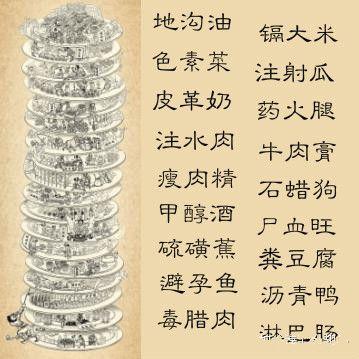 地沟油
色素菜
皮革奶
注水肉
瘦肉精
甲醇酒
硫磺蕉
避孕鱼
毒腊肉
镉大米
注射瓜
药火腿
牛肉膏
石蜡狗
尸血旺
粪豆腐
沥青鸭
淋巴肠